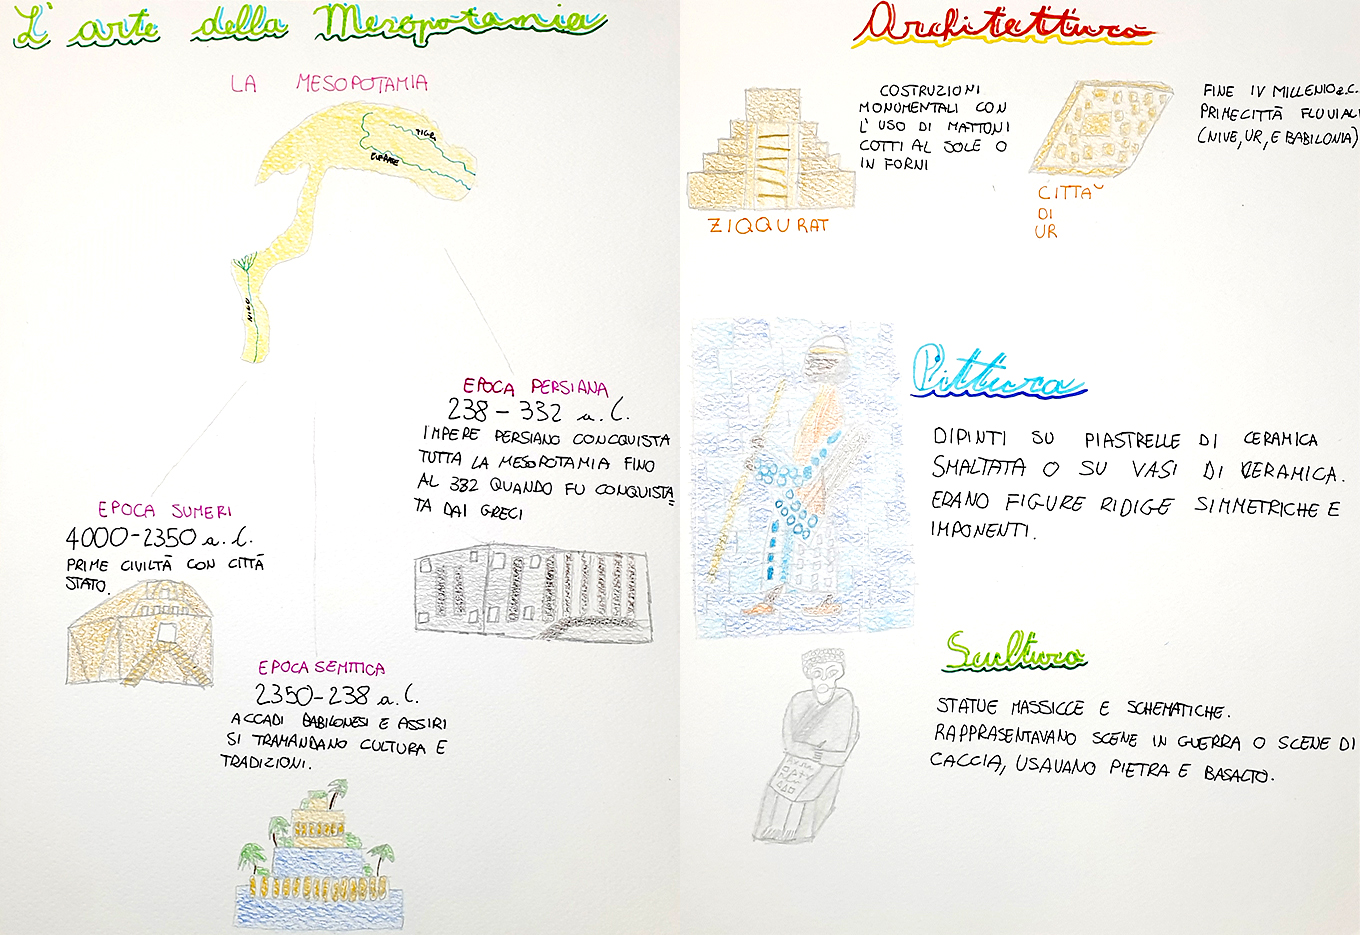 L'arte della Mesopotamia
LA MESOPOTAMIA
TIGRI
EUFRATE
NILO
EPOCA PERSIANA
238-332 a.C.
IMPERE PERSIANO CONCQUISTA
TUTTA LA MESOPOTAMIA FINO
AL 332 QUANDO FU CONQUISTA
TA DAI GRECI
EPOCA SUMERI
4000-2350 a.C.
PRIME CIVILTÀ CON CITTÀ
STATO.
EPOCA SEMITICA
2350-238 a.C.
ACCADI BABILONESI E ASSIRI
SI TRAMANDANO CULTURA E
TRADIZIONI.
Architettura
COSTRUZIONI
MONUMENTALI CON
L'USO DI MATTONI
COTTI AL SOLE O
IN FORNI
ZIQQURAT
CITTA'
DI
UR
FINE IV MILLENIO a.C.
PRIME CITTÀ FLUVIALI
(NIVE, UR, E BABILONIA)
Pittura
DIPINTI SU PIASTRELLE DI CERAMICA
SMALTATA O SU VASI DI CERAMICA.
ERANO FIGURE RIDIGE SIMMETRICHE E
IMPONENTI.
Scultura
STATUE MASSICCE E SCHEMATICHE.
RAPPRASENTAVANO SCENE IN GUERRA O SCENE DI
CACCIA, USAVANO PIETRA E BASALTO.